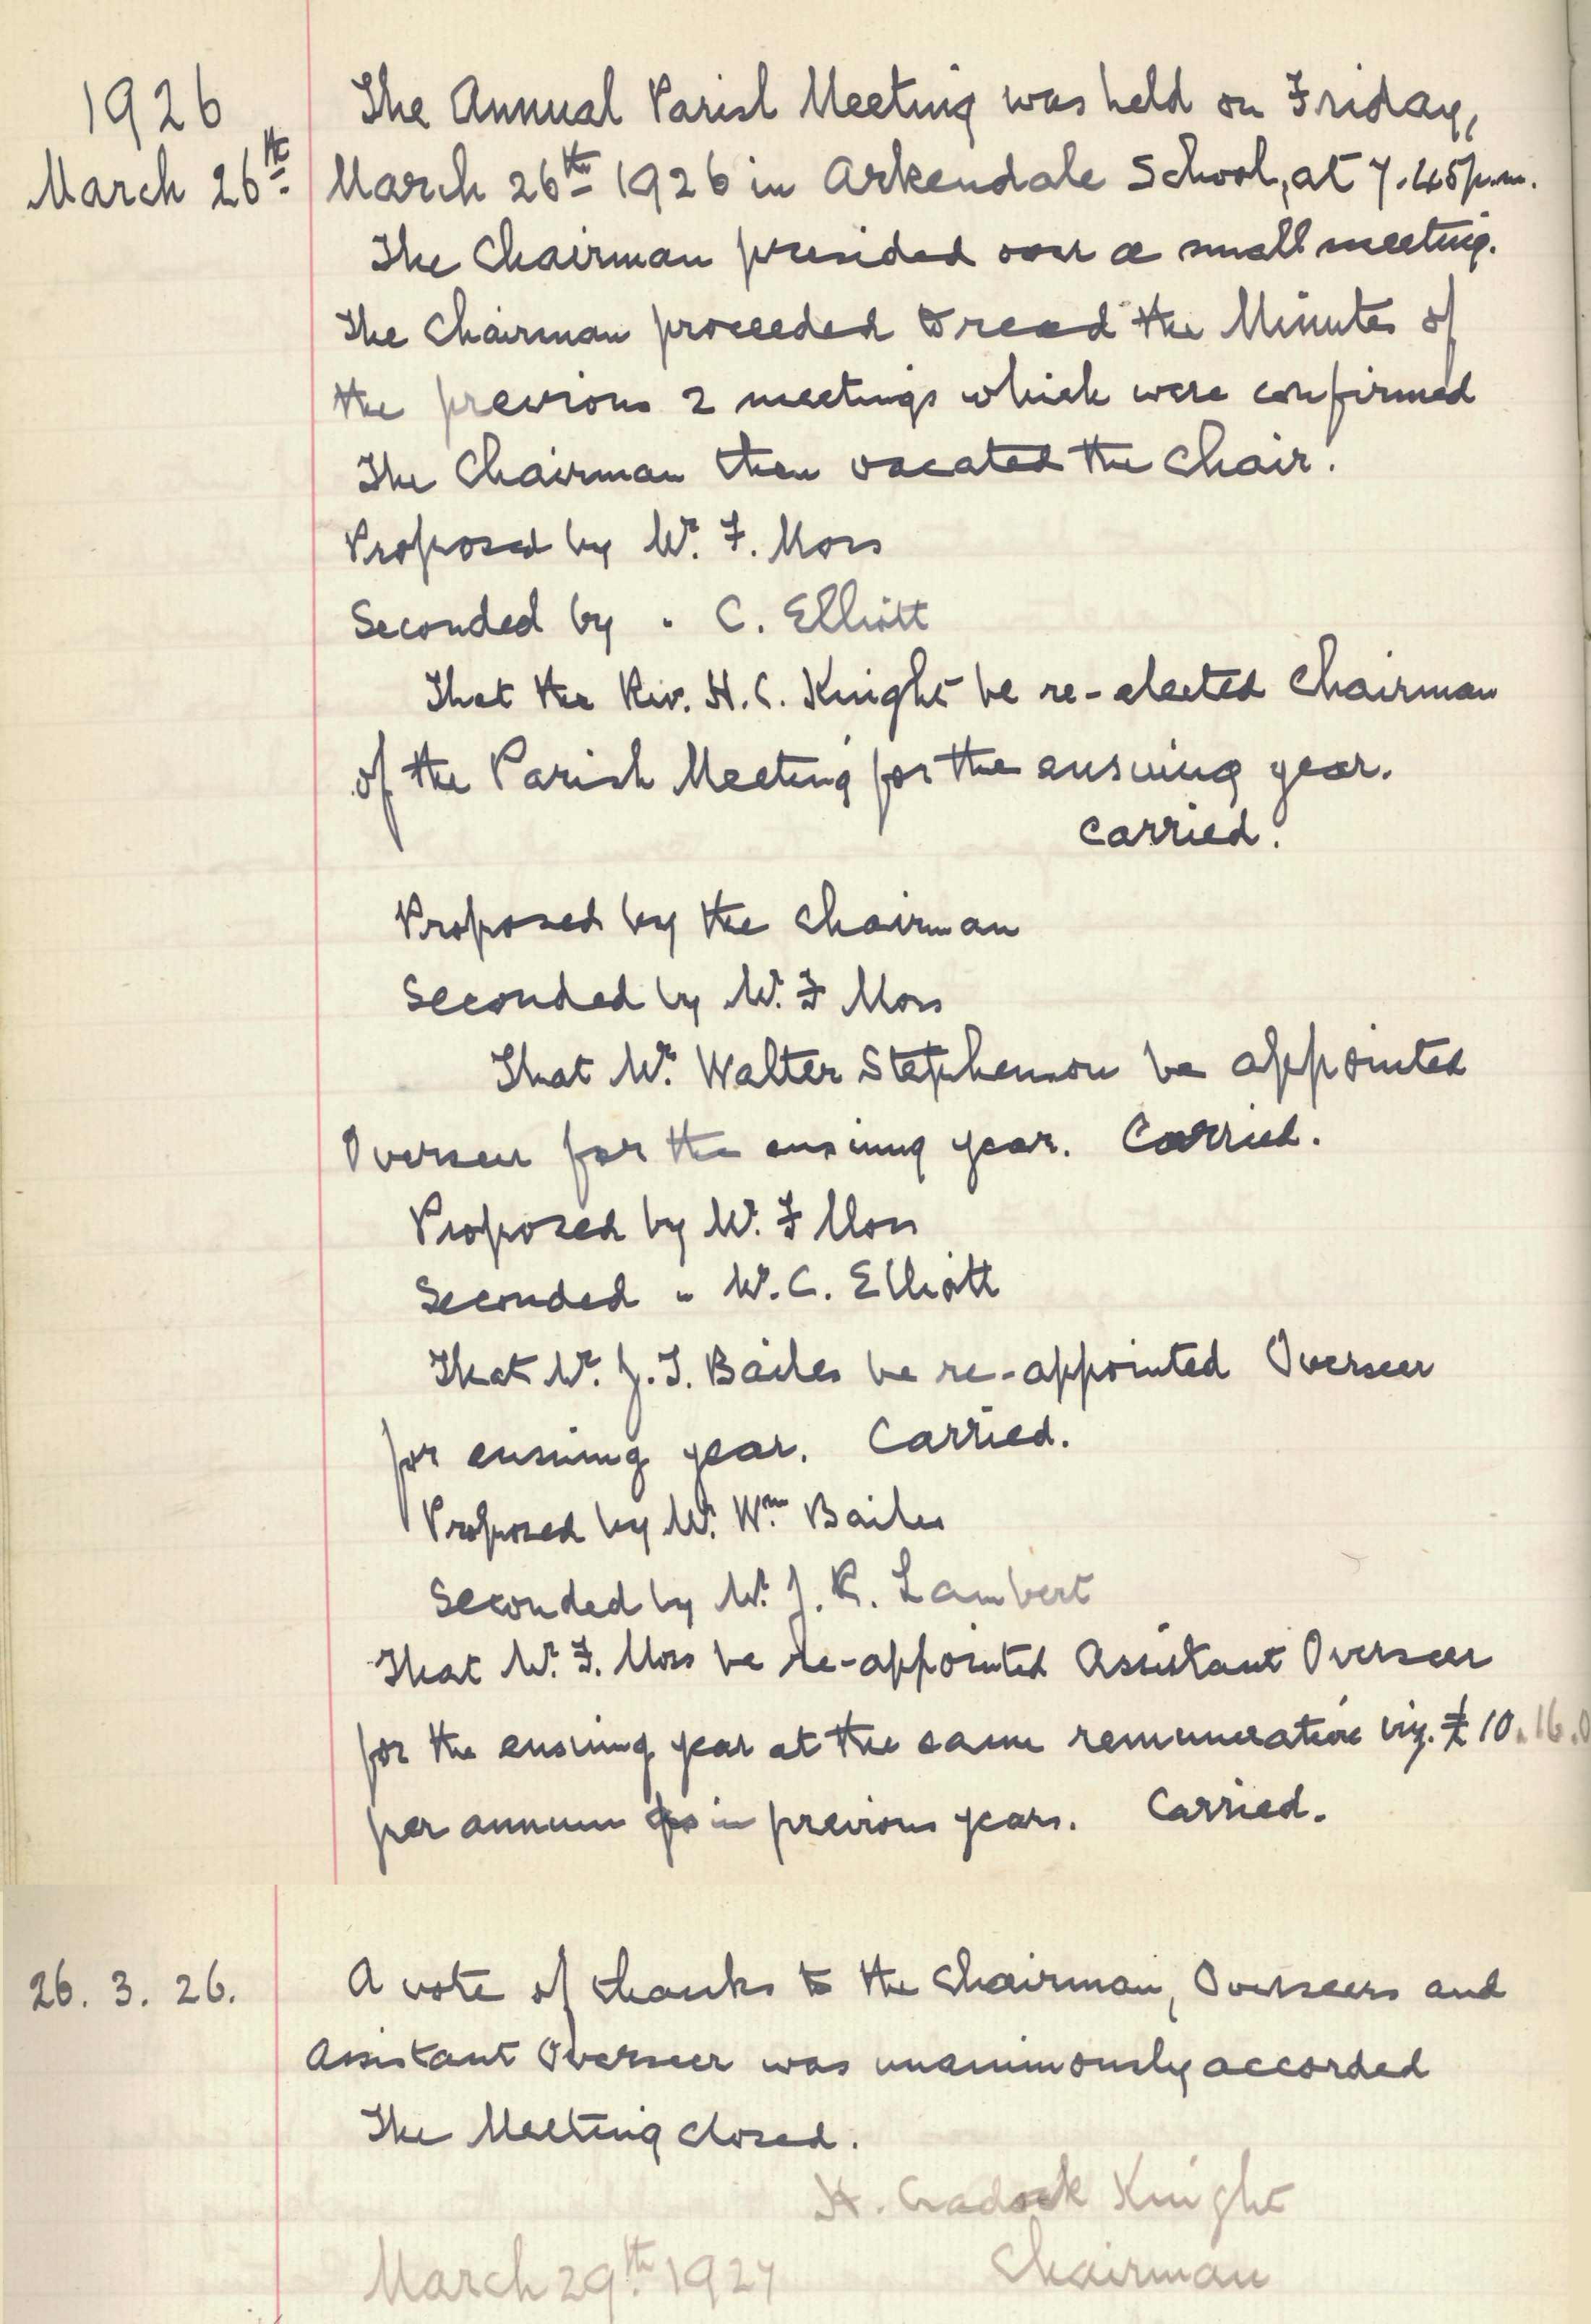 1926
March 26th
The Annual Parish Meeting was held on Friday,
March 26th 1926 in Arkendale School, at 7.45 p.m.
The Chairman presided over a small meeting.
The Chairman proceeded to read the Minutes of
the previous 2 meetings which were confirmed
The Chairman then vacated the Chair.
Proposed by Mr. F. Moss
Seconded by " C. Elliott
That the Rev. H. C. Knight be re-elected Chairman
of the Parish Meeting for the ensuing year.
Carried.
Proposed by the Chairman
Seconded by Mr. F Moss
That Mr. Walter Stephenson be appointed
Overseer for the ensuing year. Carried.
Proposed by Mr. F Moss
Seconded " Mr. C. Elliott
That Mr. J. T. Bailes be re-appointed Overseer
for ensuing year. Carried.
Proposed by Mr. Wm Bailes
Seconded by Mr. J. R. Lambert
That Mr. F. Moss be re-appointed Assistant Overseer
for the ensuing year at the same remuneration viz. £10.16.0
per annum as in previous years. Carried.
26. 3. 26.
A vote of thanks to the Chairman, Overseers and
Assistant Overseer was unanimously accorded
The Meeting closed.
H. Cradock Knight
March 29th. 1927 Chairman